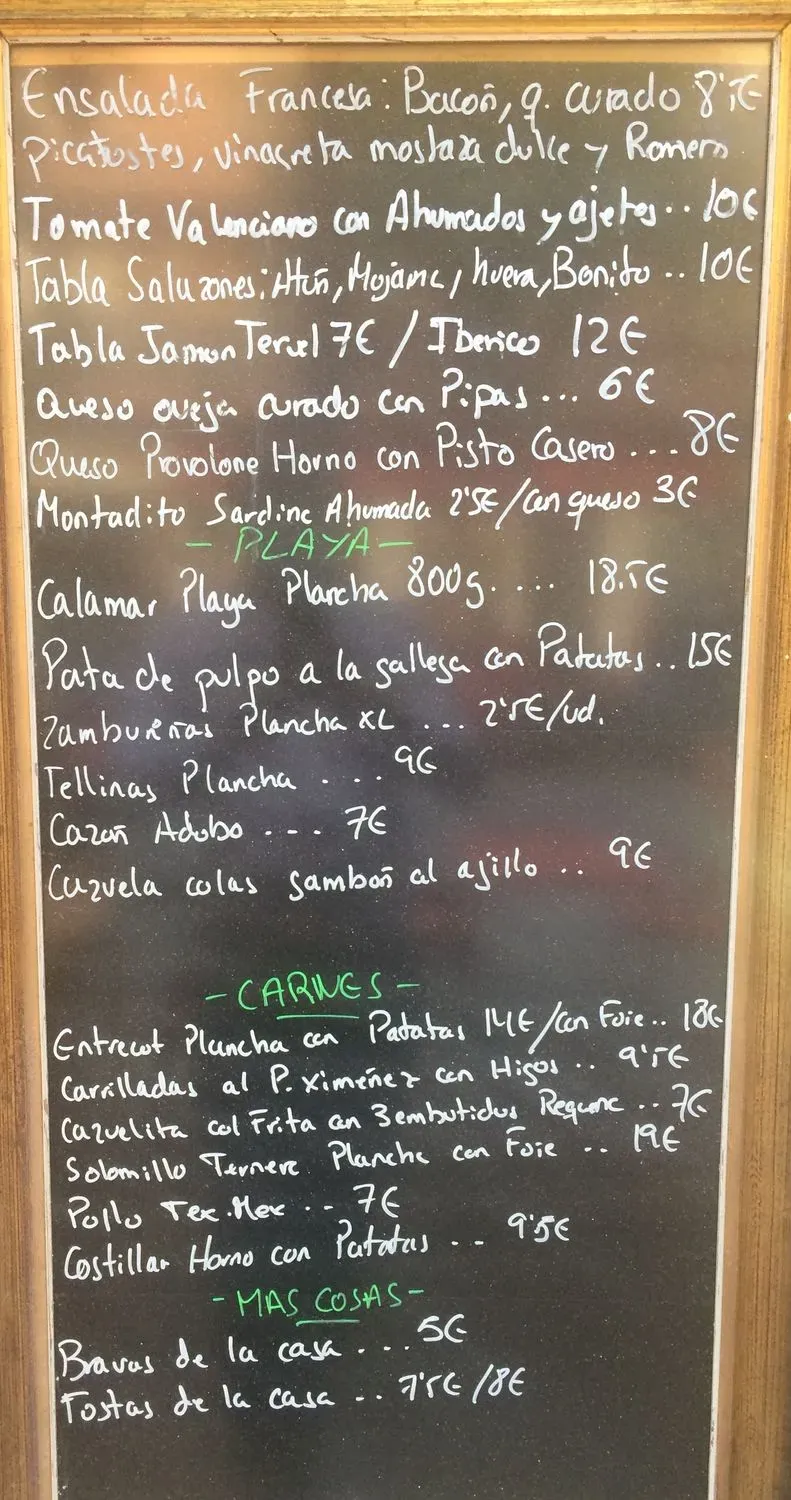 Ensalada Francesa: Bacon, q. curado 8'5€
picatostes, vinagreta mostaza dulce y Romero
Tomate Valenciano con Ahumados y ajetes.. 10€
Tabla Salazones: Atún, Mojama, huera, Bonito .. 10€
Tabla Jamon Teruel 7€ / Iberico 12€
Queso oveja curado con Pipas ... 6€
Queso Provolone Horno con Pisto Casero ... 8€
Montadito Sardina Ahumada 2'5€/con queso 3€
- PLAYA -
Calamar Playa Plancha 800g. ... 18.5€
Pata de pulpo a la gallega con Patatas .. 15€
Zamburiñas Plancha XL ... 2'5€/ud.
Tellinas Plancha .... 9€
Cazon Adobo ... 7€
Cazuela colas gambon al ajillo .. 9€
- CARNES -
Entrecot Plancha con Patatas 14€/con Foie.. 18€
Carrilladas al P. Ximenez con Higos .. 9'5€
Cazuelita col Frita con 3 embutidos Requena .. 7€
Solomillo Ternera Plancha con Foie .. 19€
Pollo Tex.Mex .. 7€
Costillar Horno con Patatas .. 9'5€
- MAS COSAS -
Bravas de la casa .... 5€
Tostas de la casa .. 7'5€ / 8€